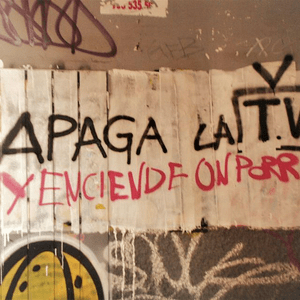 APAGA LA T.V
Y ENCIENDE ON PORR